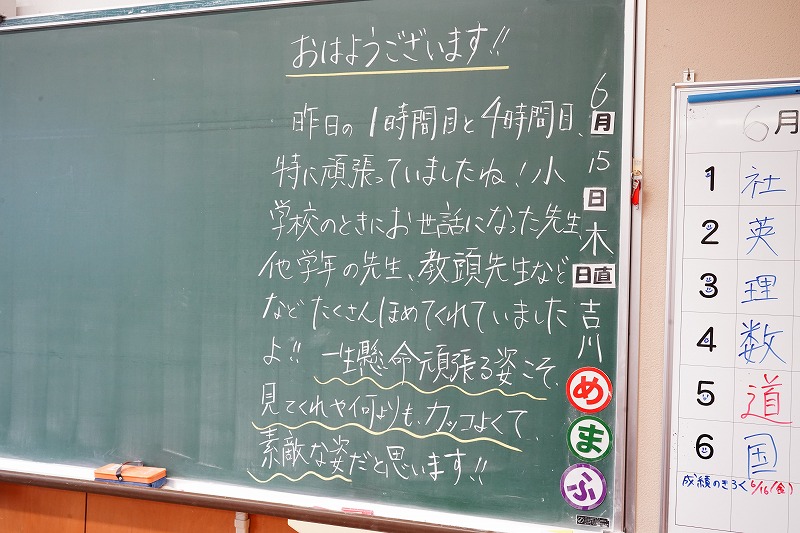 おはようございます!!
昨日の1時間目と4時間目、
特に頑張っていましたね!小
学校のときにお世話になった先生
他学年の先生、教頭先生など
などたくさんほめてくれていました
よ!!一生懸命頑張る姿こそ、
見てくれや何よりも、カッコよくて、
素敵な姿だと思います!!
6
月
15
日
木
日直
吉川
め
ま
ふ
6月
1 社
2 英
3 理
4 数
5 道
6 国
成績のきろく 6/16(金)